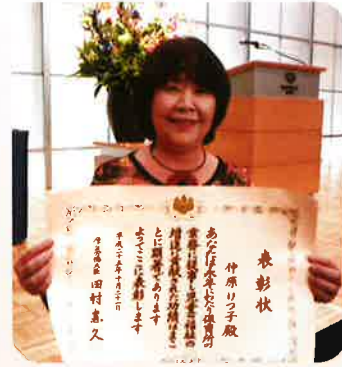 表彰状
仲原りつ子殿
あなたは永年にわたり保育所の
業務に従事し児童の福祉の
増進に貢献された功績はまこ
とに顕著であります
よってここに表彰します
平成二十五年十月二十二日
厚生労働大臣 田村憲久